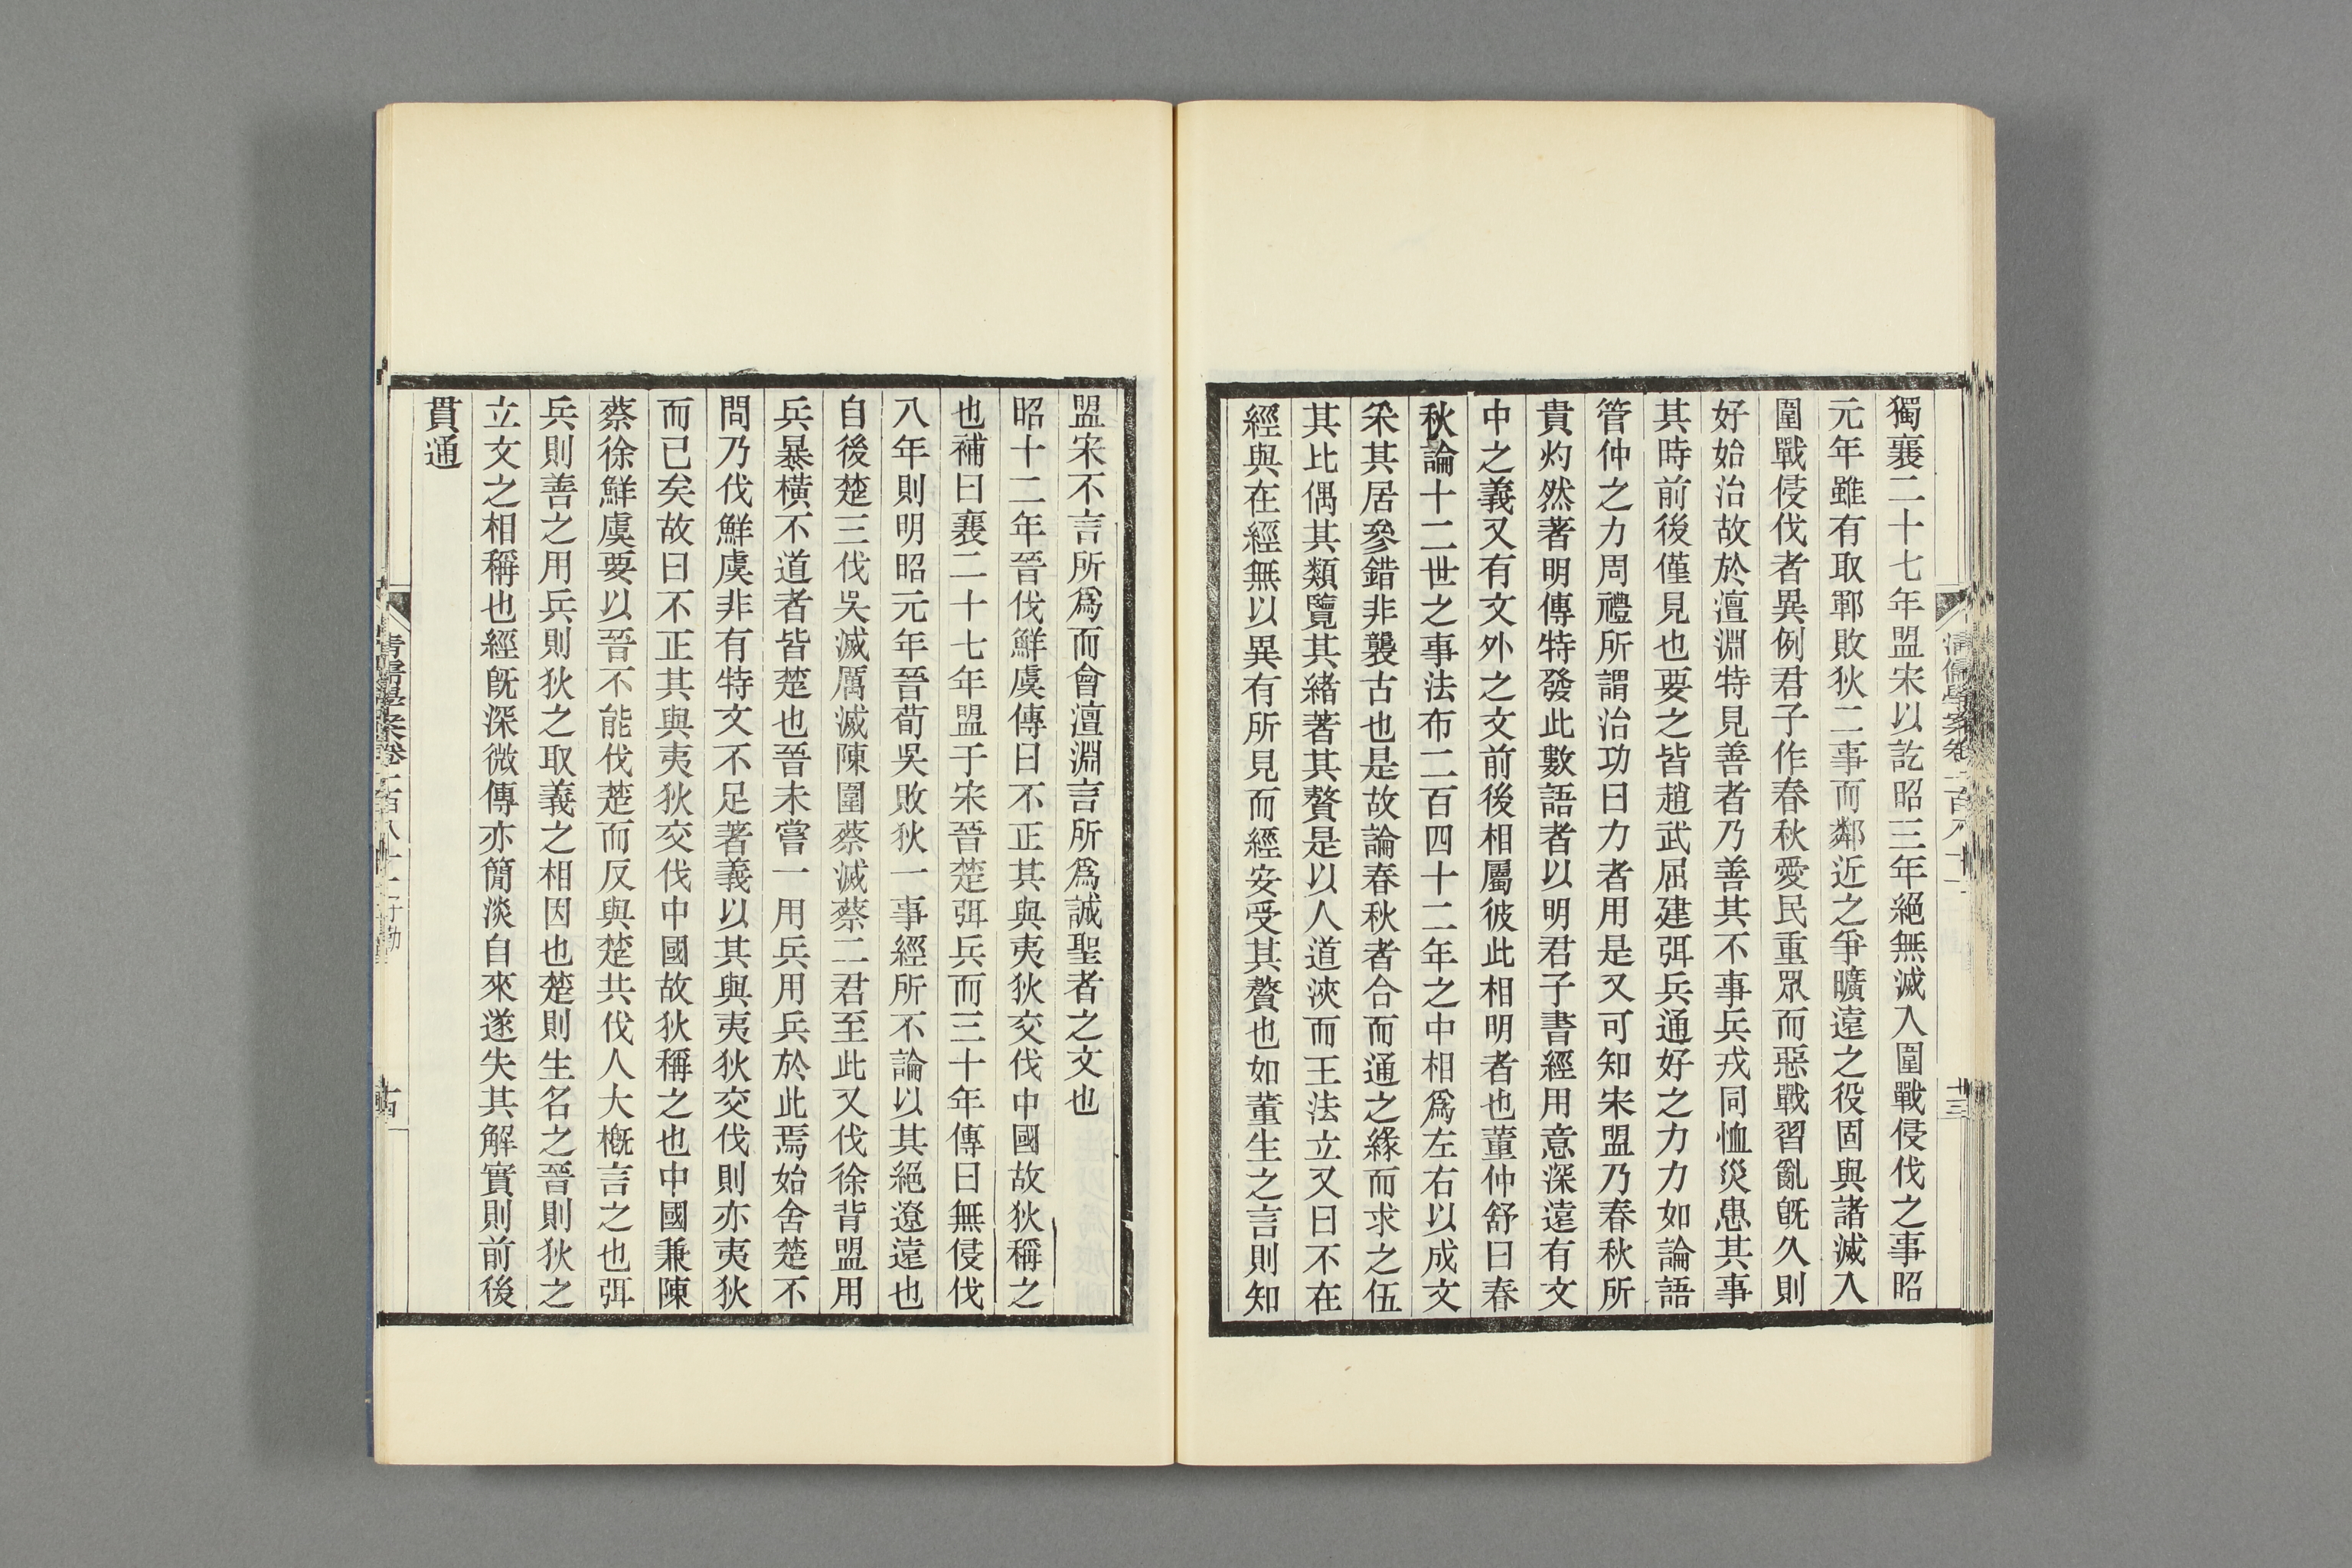 獨襄二十七年盟宋以訖昭三年絕無滅入圍戰侵伐之事昭
元年雖有取鄆敗狄二事而鄰近之爭曠遠之役固與諸滅入
圍戰侵伐者異例君子作春秋愛民重眾而惡戰習亂旣久則
好始治故於澶淵特見善者乃善其不事兵戎同恤災患其事
其時前後僅見也要之皆趙武屈建弭兵通好之力力如論語
管仲之力周禮所謂治功曰力者用是又可知宋盟乃春秋所
貴灼然著明傳特發此數語者以明君子書經用意深遠有文
中之義又有文外之文前後相屬彼此相明者也董仲舒曰春
秋論十二世之事法布二百四十二年之中相爲左右以成文
采其居參錯非襲古也是故論春秋者合而通之緣而求之伍
其比偶其類覽其緒著其贅是以人道浹而王法立又曰不在
經與在經無以異有所見而經安受其贅也如董生之言則知
清儒學案卷一百八十一
十三
盟宋不言所爲而會澶淵言所爲誠聖者之文也
昭十二年晉伐鮮虞傳曰不正其與夷狄交伐中國故狄稱之
也補曰襄二十七年盟于宋晉楚弭兵而三十年傳曰無侵伐
八年則明昭元年晉荀吳敗狄一事經所不論以其絕遼遠也
自後楚三伐吳滅厲滅陳圍蔡滅蔡二君至此又伐徐背盟用
兵暴橫不道者皆楚也晉未嘗一用兵用兵於此焉始舍楚不
問乃伐鮮虞非有特文不足著義以其與夷狄交伐則亦夷狄
而已矣故曰不正其與夷狄交伐中國故狄稱之也中國兼陳
蔡徐鮮虞要以晉不能伐楚而反與楚共伐人大槪言之也弭
兵則善之用兵則狄之取義之相因也楚則生名之晉則狄之
立文之相稱也經旣深微傳亦簡淡自來遂失其解實則前後
貫通
清儒學案卷一百八十一子勤
十四